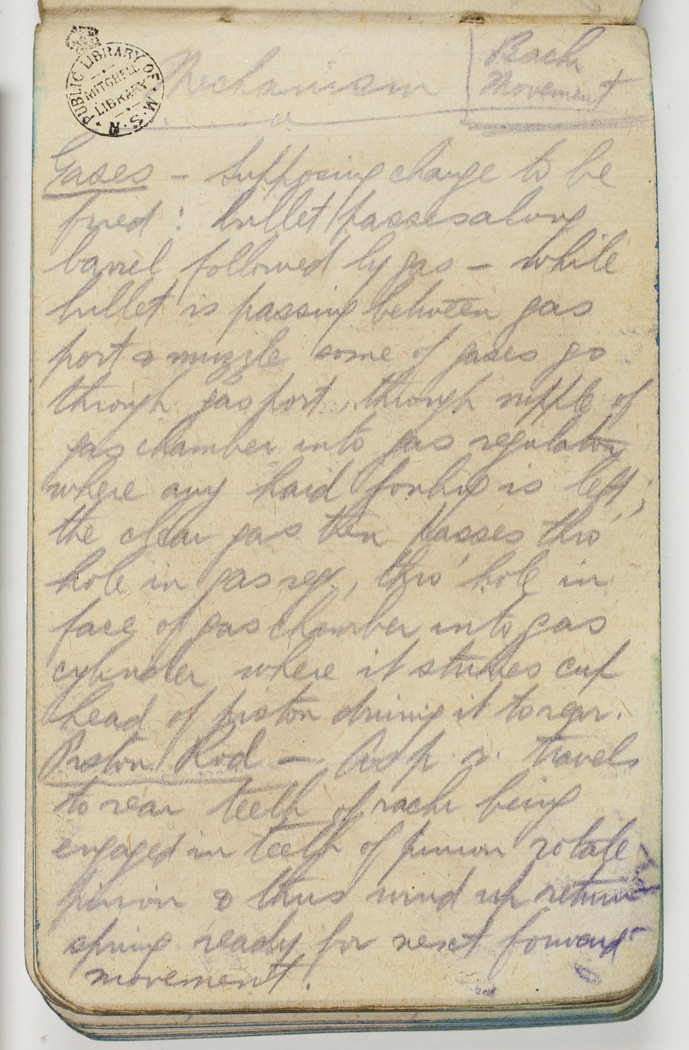 PUBLIC LIBRARY OF N.S.W.
MITCHELL
LIBRARY
Mechanism
Back
Movement
Gases – Supposing charge to be
fired: bullet passes along
barrel followed by gas – while
bullet is passing between gas
port & muzzle some of gases go
through gas port, through nipple of
gas chamber into gas regulator
where any hard fouling is left;
the clear gas then passes thro'
hole in gas reg, thro' hole in
face of gas chamber into gas
cylinder where it strikes cup
head of piston driving it to rear.
Piston Rod – As p. r. travels
to rear teeth of rack being
engaged in teeth of pinion rotate
pinion & thus wind up return
spring ready for next forward
movement.